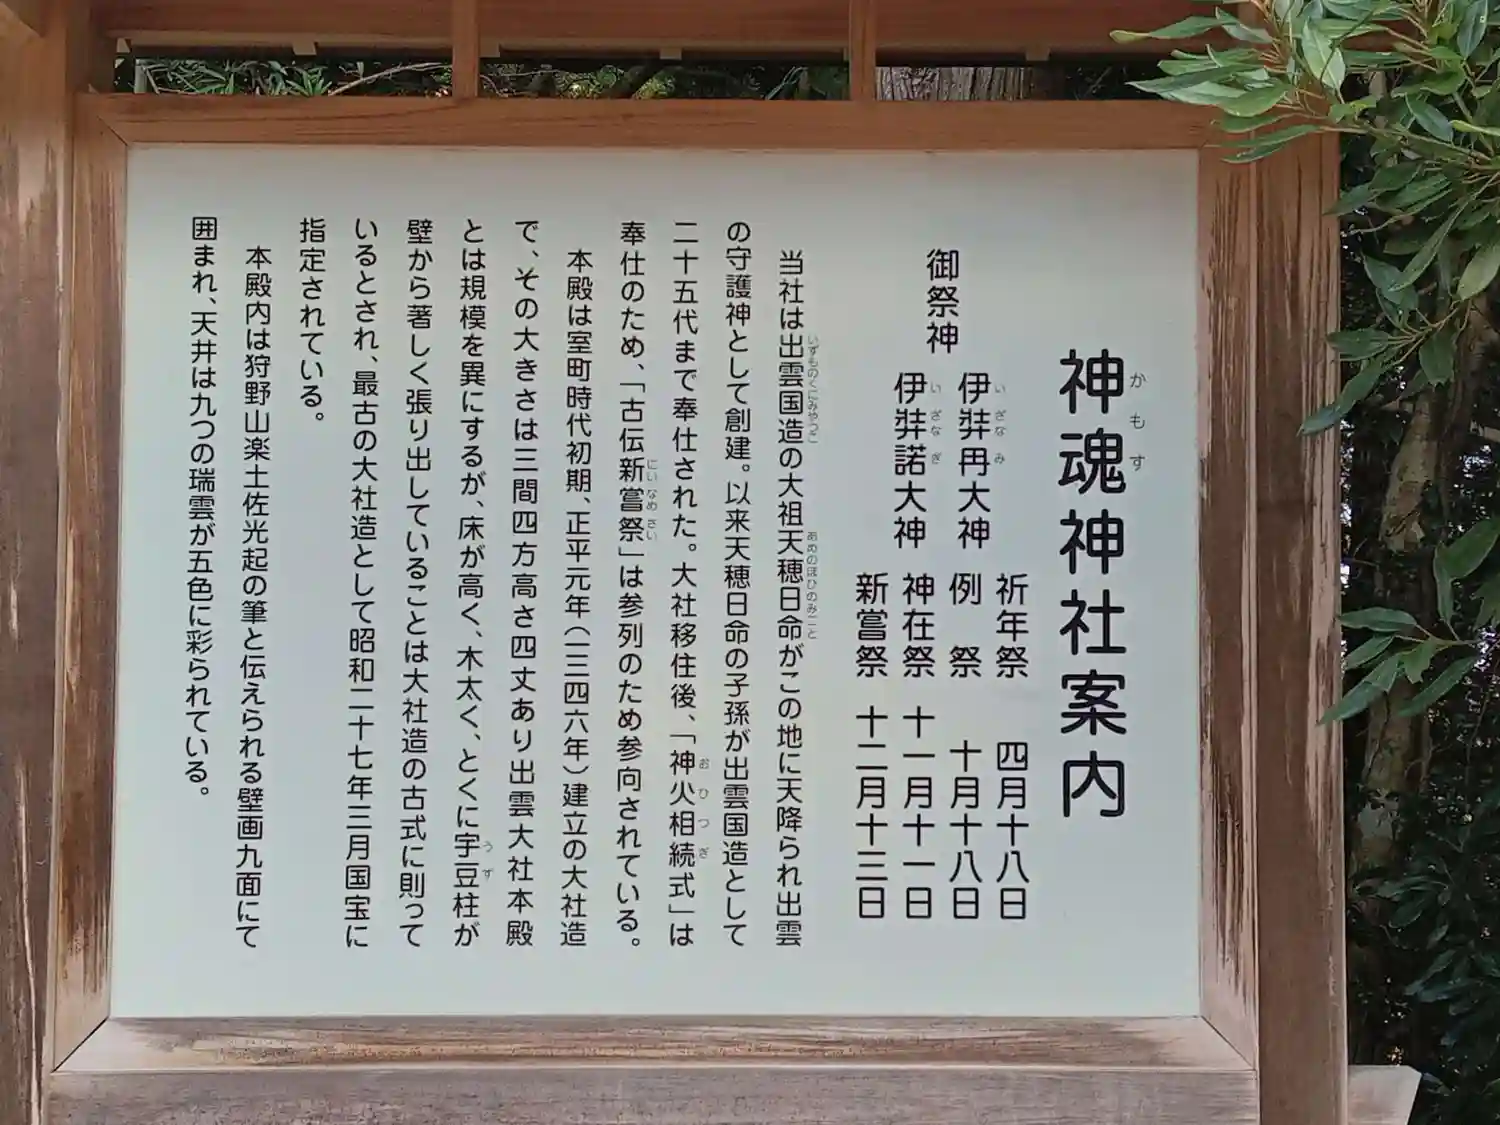 神魂神社案内
かもす
御祭神
伊弉冉大神
いざなみ
伊弉諾大神
いざなぎ
祈年祭 四月十八日
例祭 十月十八日
神在祭 十一月十一日
新嘗祭 十二月十三日
当社は出雲国造の大祖天穂日命がこの地に天降られ出雲
いずものくにみやつこ
あめのほひのみこと
の守護神として創建。以来天穂日命の子孫が出雲国造として
二十五代まで奉仕された。大社移住後、「神火相続式」は
おひつぎ
奉仕のため、「古伝新嘗祭」は参列のため参向されている。
にいなめさい
本殿は室町時代初期、正平元年(一三四六年)建立の大社造
で、その大きさは三間四方高さ四丈あり出雲大社本殿
とは規模を異にするが、床が高く、木太く、とくに宇豆柱が
うず
壁から著しく張り出していることは大社造の古式に則って
いるとされ、最古の大社造として昭和二十七年三月国宝に
指定されている。
本殿内は狩野山楽土佐光起の筆と伝えられる壁画九面にて
囲まれ、天井は九つの瑞雲が五色に彩られている。